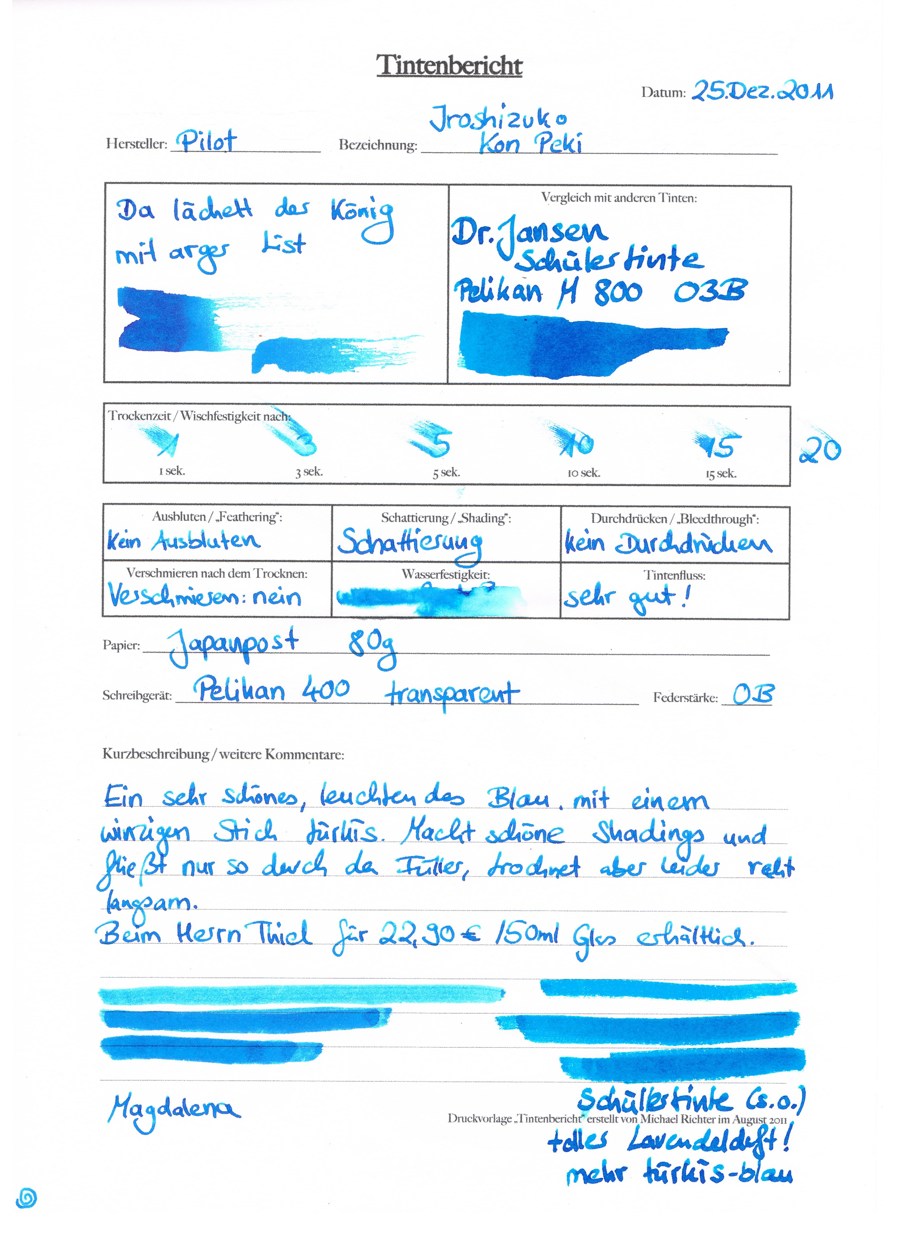 Tintenbericht
Datum: 25.Dez.2011
Iroshizuko
Hersteller: Pilot Bezeichnung: Kon Peki
Da lächelt der König
mit arger List
Vergleich mit anderen Tinten:
Dr. Jansen
Schülertinte
Pelikan M 800 O3B
Trockenzeit / Wischfestigkeit nach:
1 3 5 10 15 20
1 sek. 3 sek. 5 sek. 10 sek. 15 sek.
Ausbluten / „Feathering“: Schattierung / „Shading“: Durchdrücken / „Bleedthrough“:
Kein Ausbluten Schattierung kein Durchdrücken
Verschmieren nach dem Trocknen: Wasserfestigkeit: Tintenfluss:
Verschmieren: nein sehr gut!
Papier: Japanpost 80g
Schreibgerät: Pelikan 400 transparent Federstärke: OB
Kurzbeschreibung / weitere Kommentare:
Ein sehr schönes, leuchtendes Blau. mit einem
winzigen Stich türkis. Macht schöne Shadings und
fließt nur so durch de Füller, trocknet aber leider recht
langsam.
Beim Herrn Thiel für 22,90 € /50ml Glas erhältlich.
Magdalena
Schülertinte (s.o.)
Druckvorlage „Tintenbericht“ erstellt von Michael Richter im August 2011
tolles Lavendelduft!
mehr türkis-blau